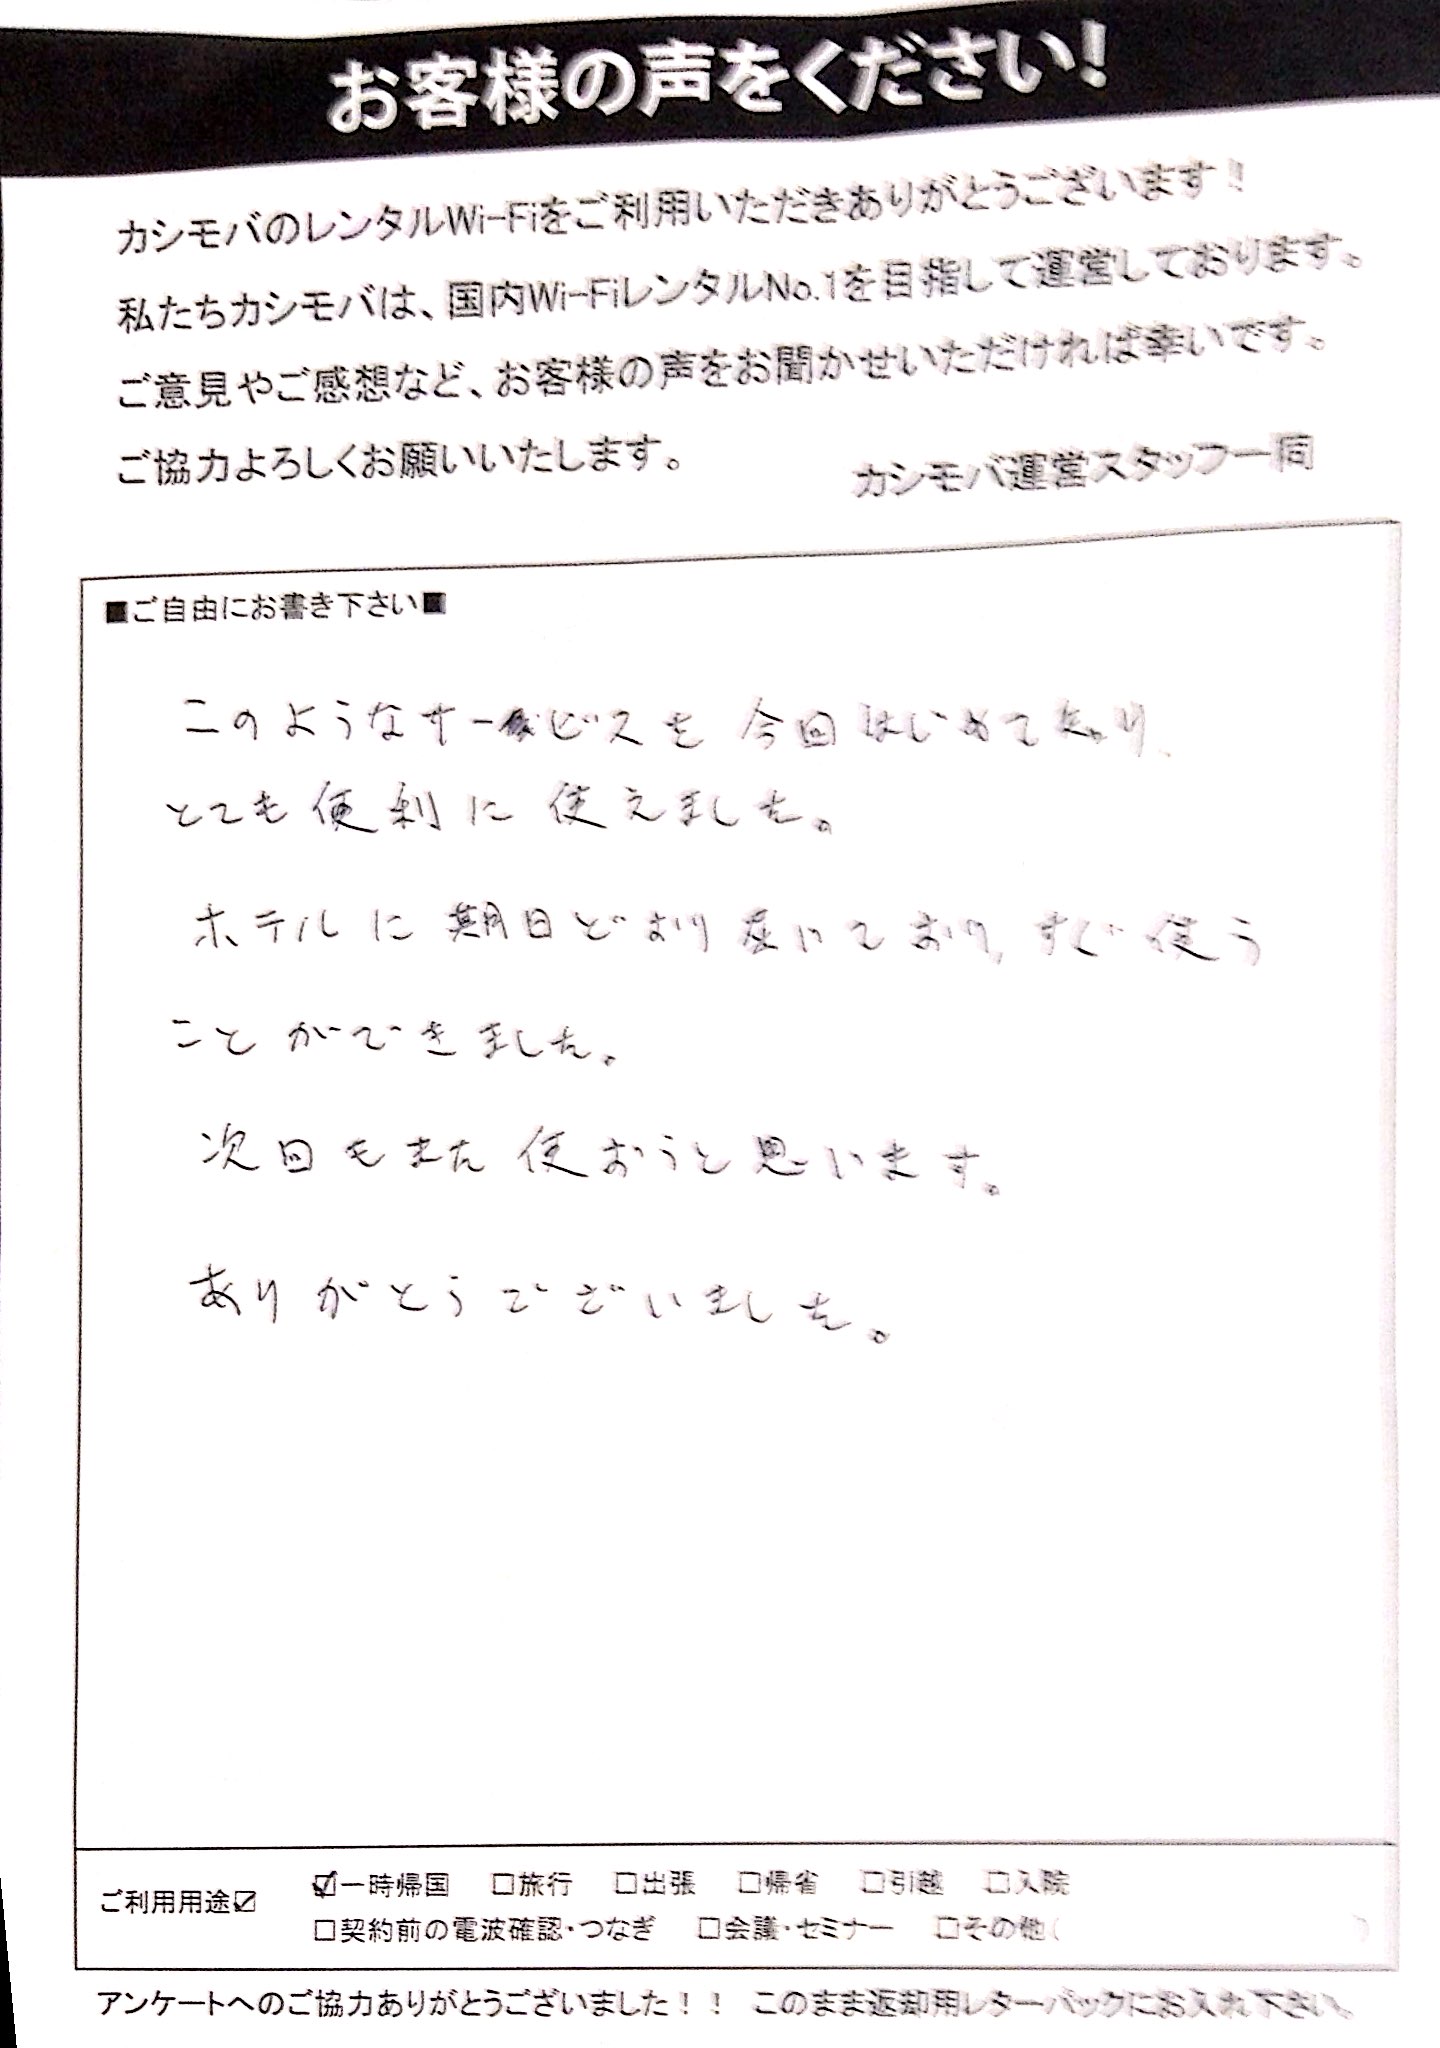 お客様の声をください!
カシモバのレンタルWi-Fiをご利用いただきありがとうございます!
私たちカシモバは、国内Wi-FiレンタルNo.1を目指して運営しております。
ご意見やご感想など、お客様の声をお聞かせいただければ幸いです。
ご協力よろしくお願いいたします。
カシモバ運営スタッフ一同
■ご自由にお書き下さい■
このようなサービスを今回はじめて知り、
とても便利に使えました。
ホテルに期日どおり届いており、すぐ使う
ことができました。
次回もまた使おうと思います。
ありがとうございました。
ご利用用途☑ ☑一時帰国 □旅行 □出張 □帰省 □引越 □入院
□契約前の電波確認・つなぎ □会議・セミナー □その他( )
アンケートへのご協力ありがとうございました!! このまま返却用レターパックにお入れ下さい。